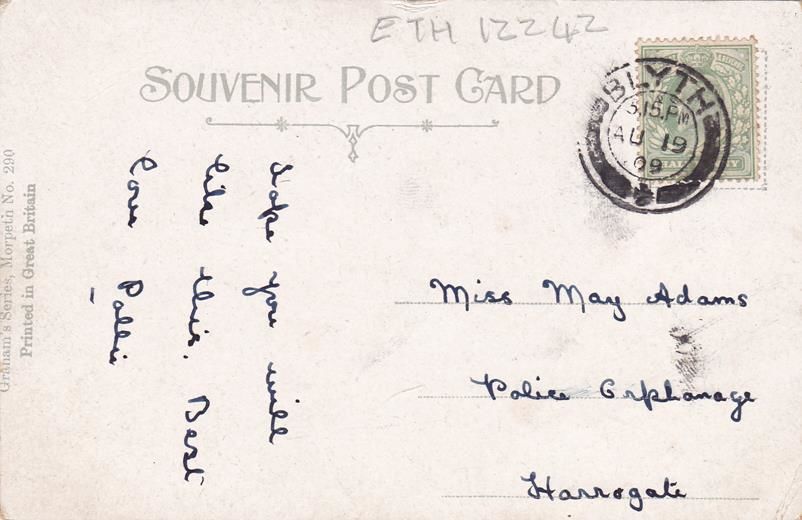 ETH 12242
SOUVENIR POST CARD
BLYTH
3.15.PM
AU 19
09
Graham's Series, Morpeth No. 290
Printed in Great Britain
Hope you will
like this. Best
love Pollie
Miss May Adams
Police Orphanage
Harrogate